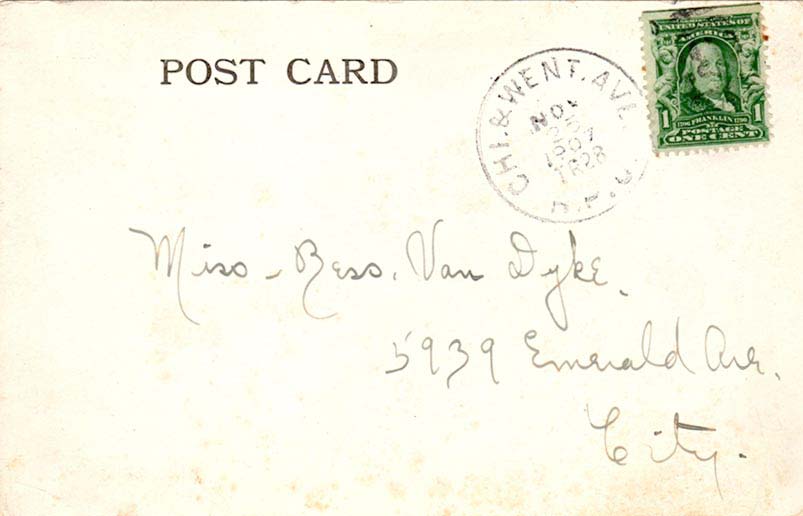 POST CARD
CHI. & WENT. AVE.
NOV
1907
TR 28
R.P.O.
UNITED STATES OF
AMERICA
1 1
1706 FRANKLIN 1790
POSTAGE
ONE CENT
Miss Bess. Van Dyke.
5939 Emerald Ave.
City.